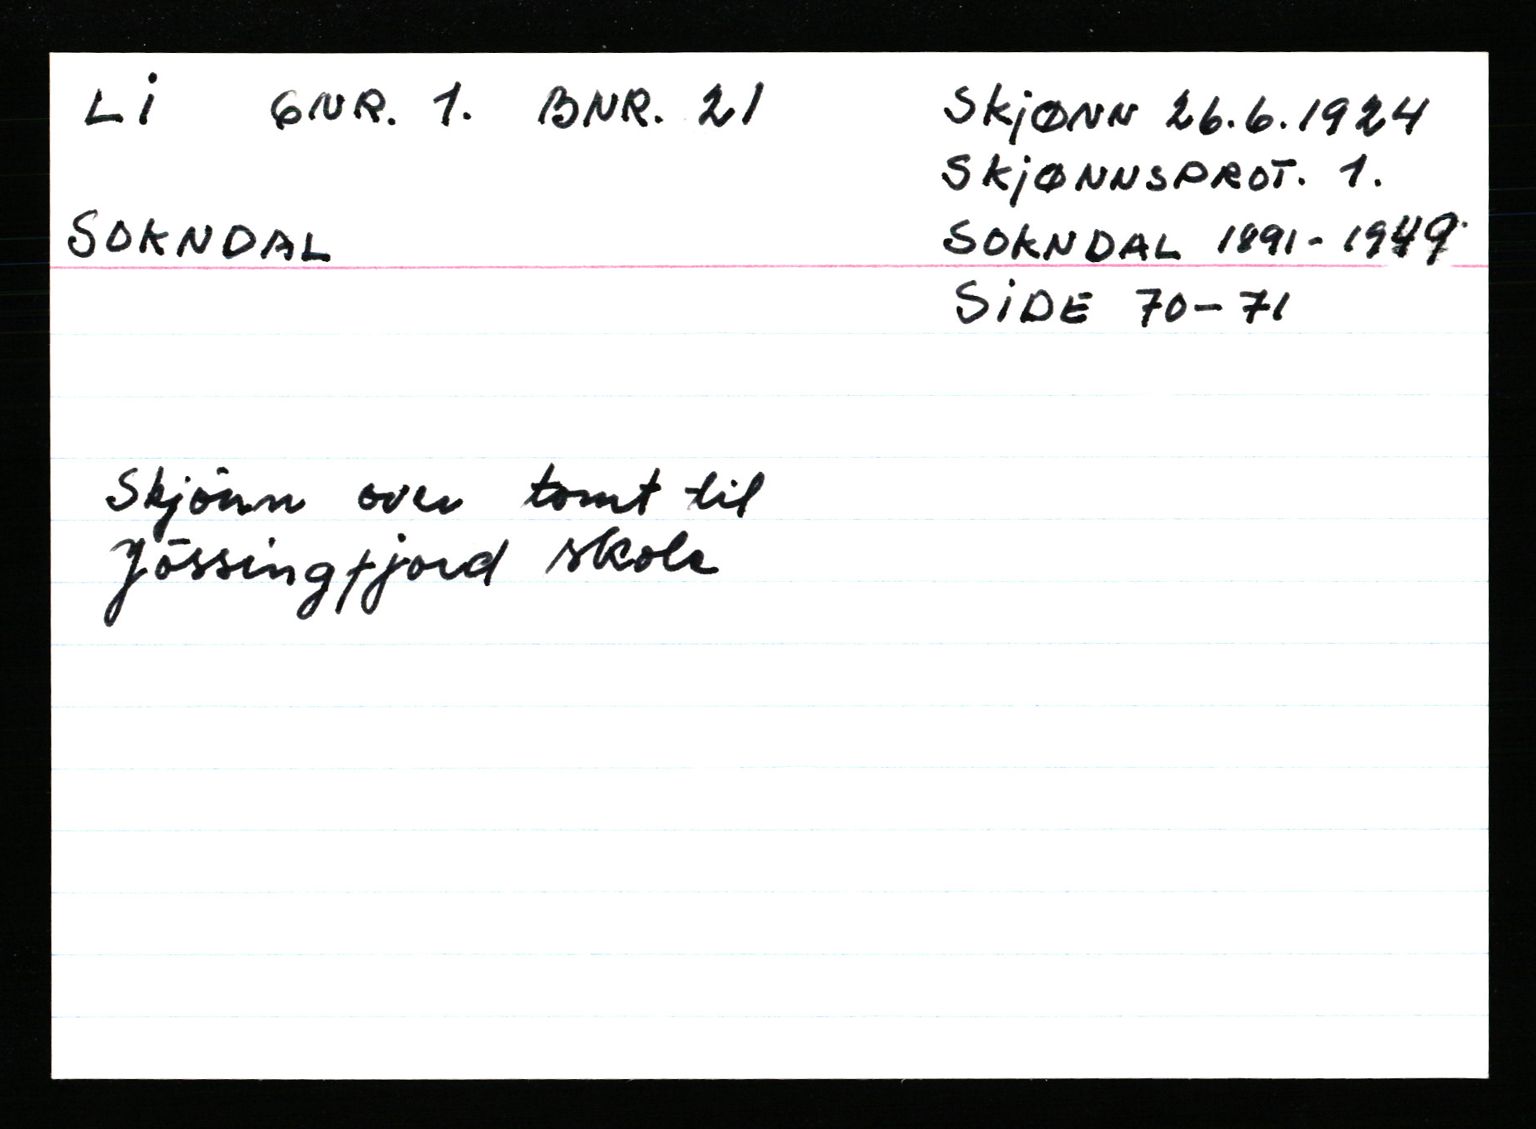 Li GNR. 1. BNR. 21
SOKNDAL
SkjØNN 26.6.1924
SkjØNNSPROT. 1.
SOKNDAL 1891-1949.
SiDE 70-71
Skjönn over tomt til
Jössingfjord skole